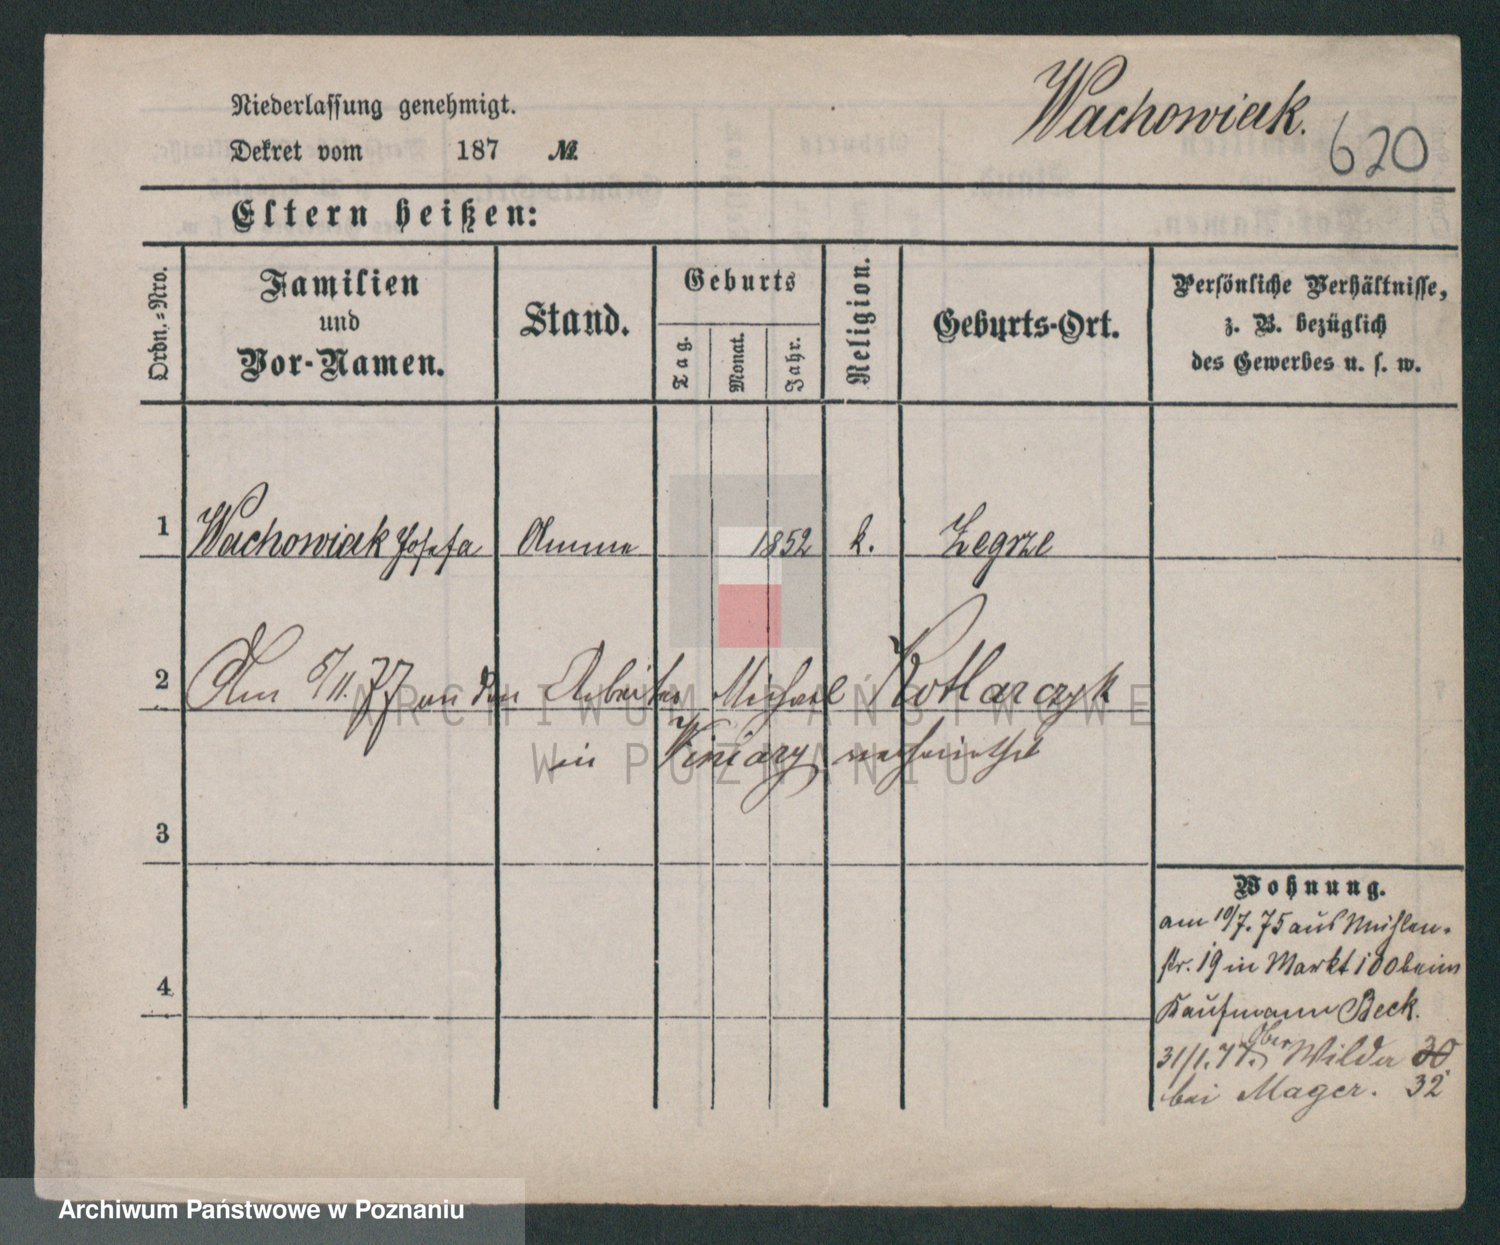 Niederlassung genehmigt.
Wachowiak.
620
Dekret vom 187 №
Eltern heißen:
Ordn.-Nro.
Familien und Vor-Namen.
Stand.
Geburts
Tag.
Monat.
Jahr.
Religion.
Geburts-Ort.
Persönliche Verhältnisse,
z. B. bezüglich
des Gewerbes u. s. w.
1 Wachowiak Josefa Amme 1852 k. Zegrze
2 Am 5/11.77 an den Arbeiter Michael Kotlarczyk
in Winiary verheirathet
3
4
Wohnung.
am 10/7. 75 aus Mühlen-
str. 19 in Markt 100 beim
Kaufmann Beck.
31/1.77. Ober Wilda 30
bei Mager. 32
ARCHIWUM PAŃSTWOWE
W POZNANIU
Archiwum Państwowe w Poznaniu